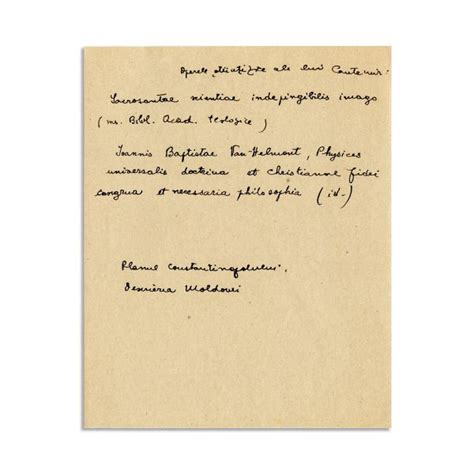 Operele științifice ale lui Cantemir:
Sacrosantae scientiae indepingibilis imago
(ms. Bibl. Acad. Teologice)
Ioannis Baptistae Van-Helmont, Physices
universalis doctrina et Christianae fidei
congrua et necessaria philosophia (id.)
Planul Constantinopolului.
Descrierea Moldovei